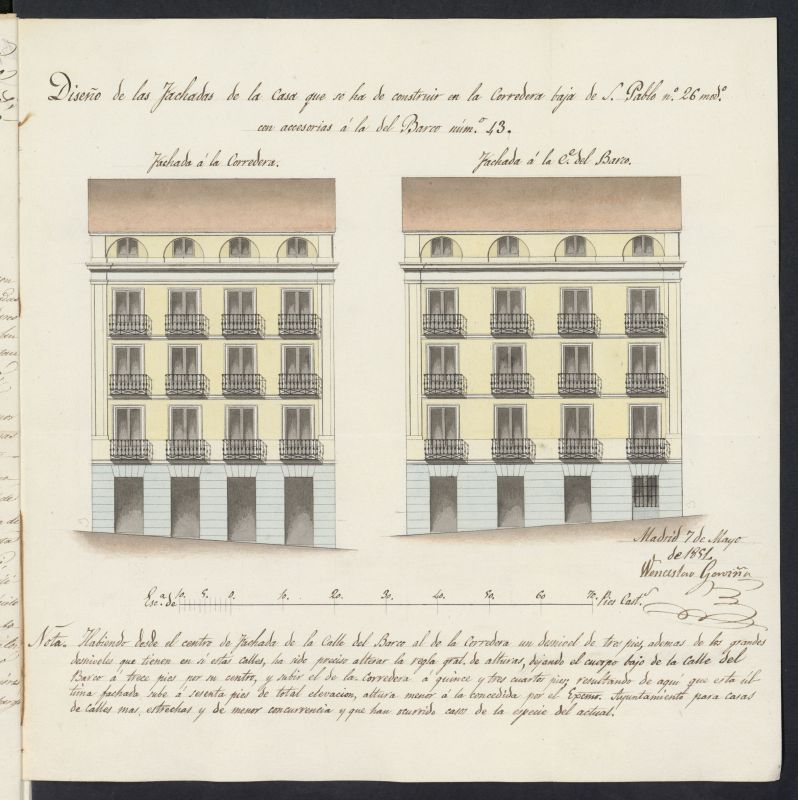 Diseño de las Fachadas de la Casa que se ha de construir en la Corredera baja de S. Pablo n.º 26 mod.º
con accesorias á la del Barco núm.º 43.
Fachada á la Corredera.
Fachada á la C.e del Barco.
Madrid 7 de Mayo
de 1851.
Wenceslao Gaviña
Esc.a de 10. 5. 0. 10. 20. 30. 40. 50. 60 70. Pies Cast.s
Nota. Habiendo desde el centro de Fachada de la Calle del Barco al de la Corredera un desnivel de tres pies, ademas de los grandes
desniveles que tienen en si estas calles, ha sido preciso alterar la regla gral. de alturas, dejando el cuerpo bajo de la calle del
Barco á trece pies por su centro, y subir el de la Corredera á quince y tres cuartos pies; resultando de aqui que esta úl
tima fachada sube á sesenta pies de total elevacion, altura menor á la concedida por el Excmo. Ayuntamiento para casas
de calles mas estrechas y de menor concurrencia y que han ocurrido casos de la especie del actual.